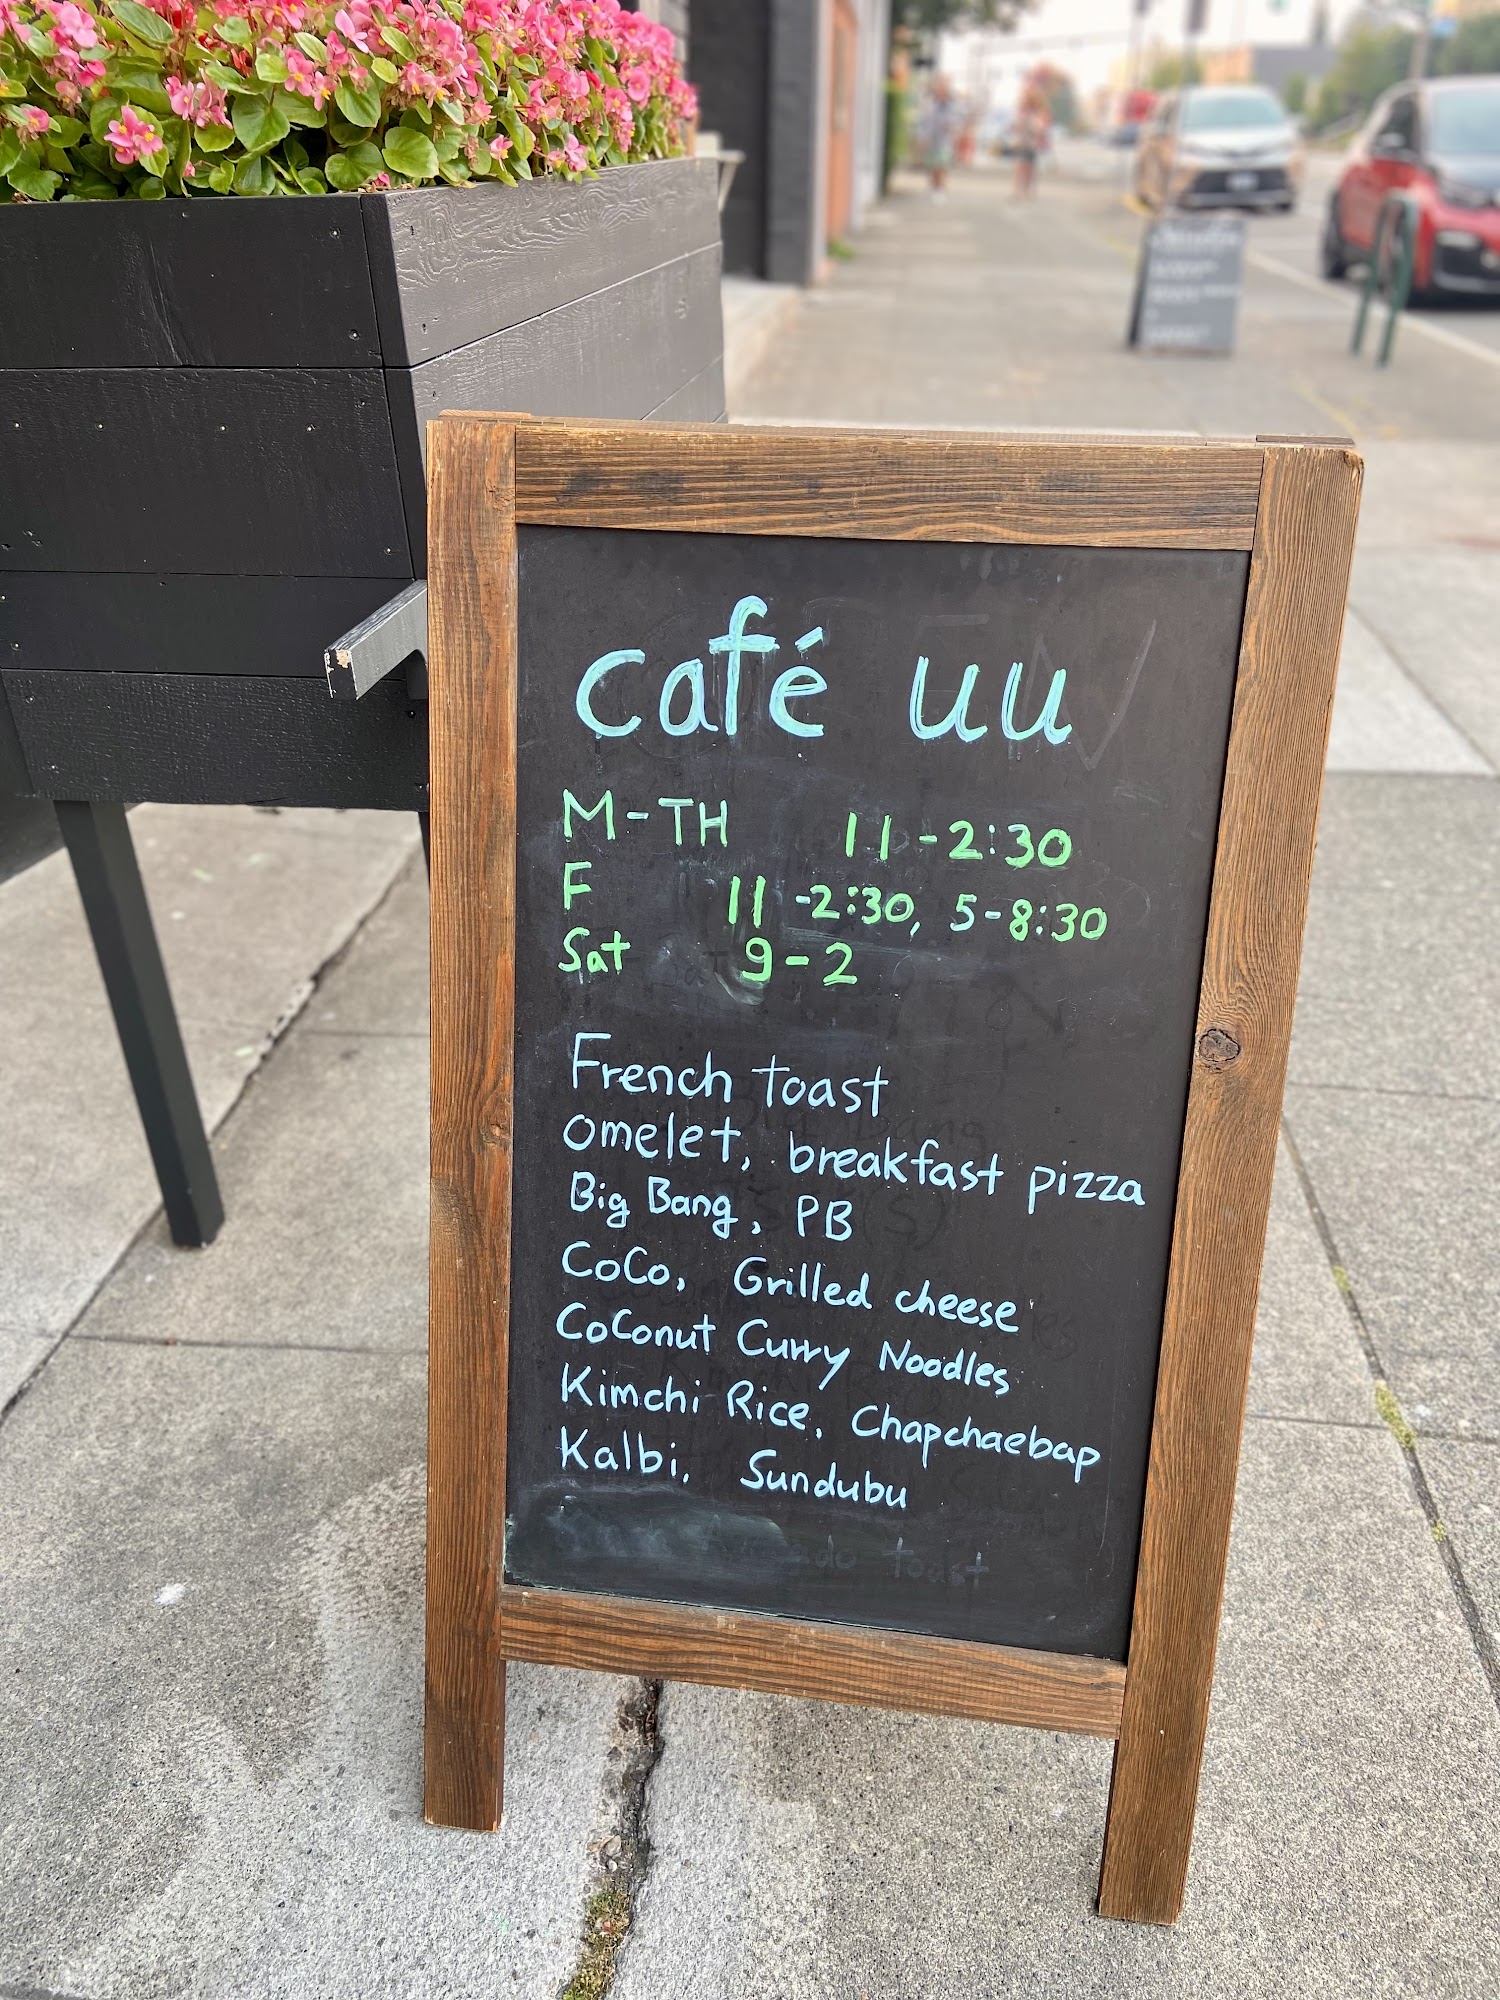 café uu
M-TH 11-2:30
F 11-2:30, 5-8:30
Sat 9-2
French toast
omelet, breakfast pizza
Big Bang, PB
CoCo, Grilled cheese
CoConut Curry Noodles
Kimchi Rice, Chapchaebap
Kalbi, Sundubu